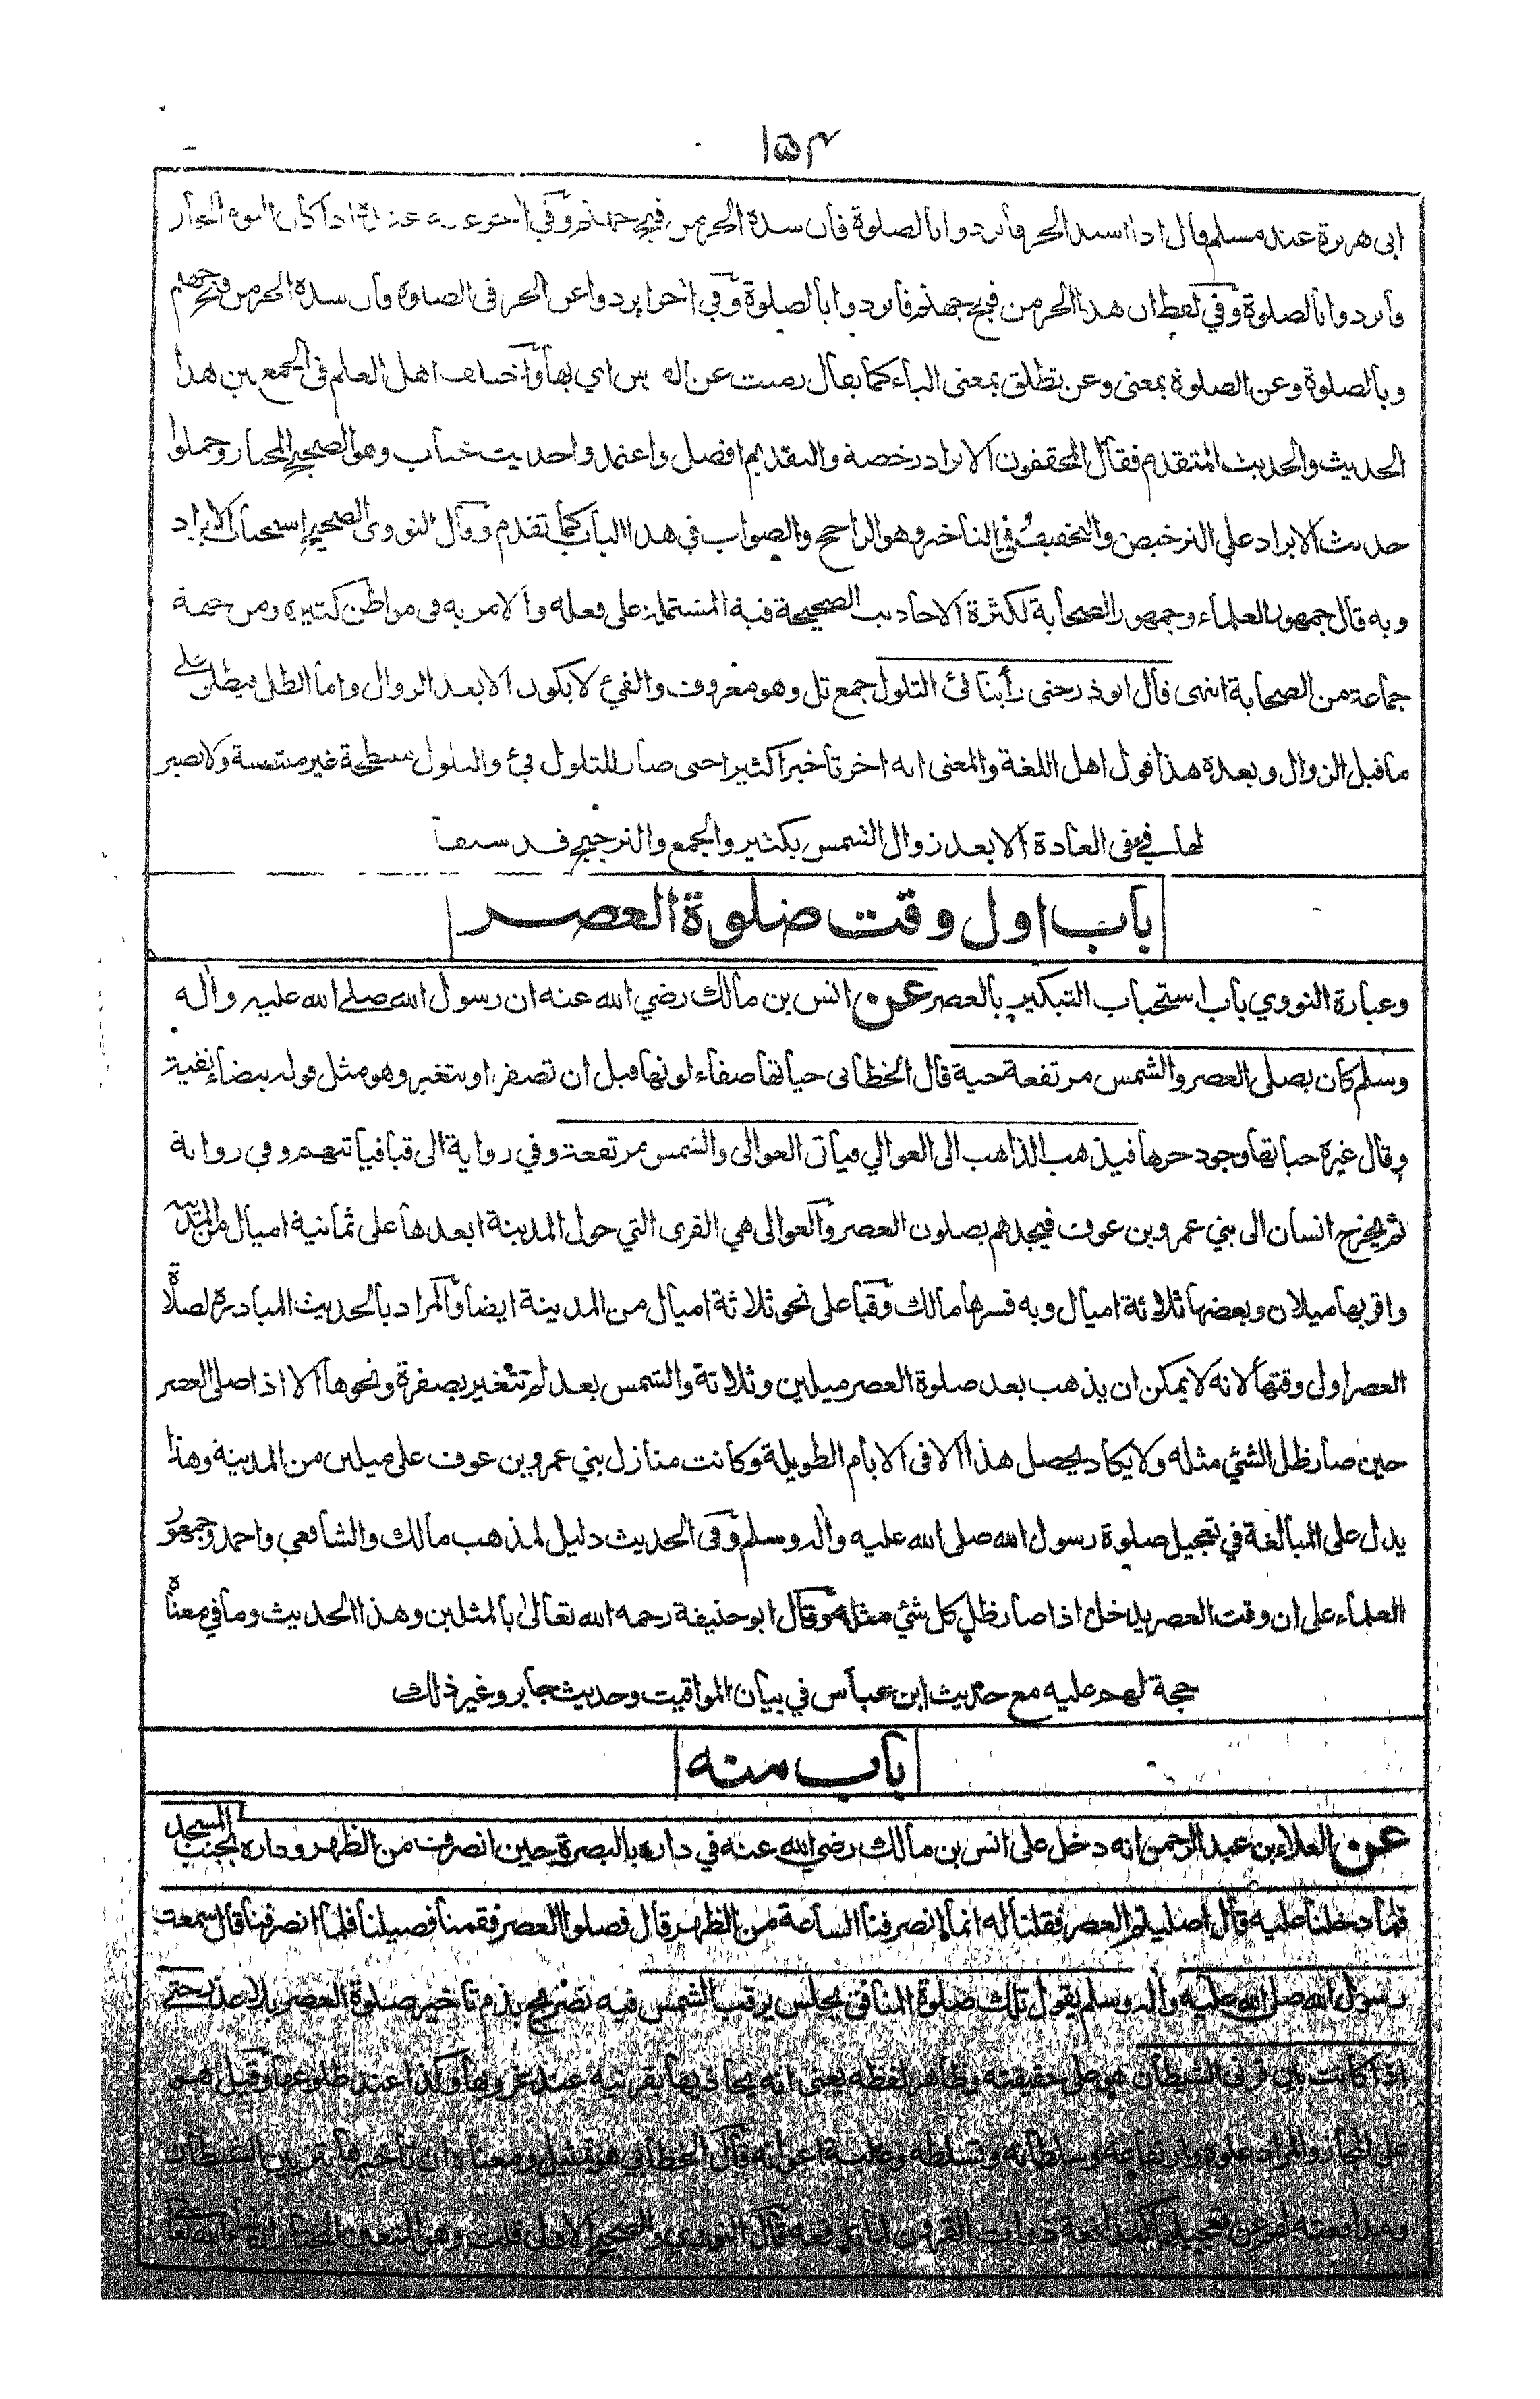 ١٥٤
ابى هريرة عند مسلم قال اذا اشتد الحر فأبردوا بالصلوة فان شدة الحر من فيح جهنم وفي اذا كان اليوم الحار
فأبردوا بالصلوة وفي لفظ ان هذا الحر من فيح جهنم فابردوا بالصلوة وفي اخر ابردوا عن الحر فى الصلوة فان شدة الحر من فيح جهنم
وبالصلوة وعن الصلوة بمعنى وعن تطلق بمعنى الباء كما يقال رميت عن القوس اي بها واختلف اهل العلم فى الجمع بين هذا
الحديث والحديث المتقدم فقال المحققون الابراد رخصة والتقديم افضل واعتمدوا حديث خباب وهو الصحيح المختار وحملوا
حديث الابراد على الترخيص والتخفيف في التأخير وهو الراجح والصواب في هذا الباب كما تقدم وقال النووى الصحيح استحباب الابراد
وبه قال جمهور العلماء وجمهور الصحابة لكثرة الاحاديث الصحيحة فيه المشتملة على فعله والامر به فى مواطن كثيرة ومن جهة
جماعة من الصحابة انتهى قال ابوذر حتى رأينا فئ التلول جمع تل وهو معروف والفئ لا يكون الا بعد الزوال واما الظل فيطلق على
ما قبل الزوال وبعده هذا قول اهل اللغة والمعنى انه اخر تأخيرا كثيرا حتى صار للتلول فئ والتلول منبطحة غير منتصبة ولا يصير
لها فئ في العادة الا بعد زوال الشمس بكثير والجمع والترجيح قد سبقا
باب اول وقت صلوة العصر
وعبارة النووي باب استحباب التبكير بالعصر عن انس بن مالك رضي الله عنه ان رسول الله صلى الله عليه واله
وسلم كان يصلى العصر والشمس مرتفعة حية قال الخطابى حياتها صفاء لونها قبل ان تصفر او تتغير وهو مثل قوله بيضاء نقية
وقال غيره حياتها وجود حرها فيذهب الذاهب الى العوالي فيأتى العوالى والشمس مرتفعة وفي رواية الى قبا فيأتيهم وفي رواية
ثم يخرج انسان الى بني عمرو بن عوف فيجدهم يصلون العصر والعوالى هي القرى التي حول المدينة ابعدها على ثمانية اميال من المدينة
واقربها ميلان وبعضها ثلاثة اميال وبه فسرها مالك وقبا على نحو ثلاثة اميال من المدينة ايضا والمراد بالحديث المبادرة لصلاة
العصر اول وقتها لانه لا يمكن ان يذهب بعد صلوة العصر ميلين وثلاثة والشمس بعد لم تتغير بصفرة ونحوها الا اذا صلى العصر
حين صار ظل الشئ مثله ولا يكاد يحصل هذا الا فى الايام الطويلة وكانت منازل بني عمرو بن عوف على ميلين من المدينة وهذا
يدل على المبالغة في تعجيل صلوة رسول الله صلى الله عليه واله وسلم وفى الحديث دليل لمذهب مالك والشافعي واحمد وجمهور
العلماء على ان وقت العصر يدخل اذا صار ظل كل شئ مثله وقال ابو حنيفة رحمه الله تعالى بالمثلين وهذا الحديث وما في معناه
حجة لهم عليه مع حديث ابن عباس في بيان المواقيت وحديث جابر وغير ذلك
باب منه
عن العلاء بن عبد الرحمن انه دخل على انس بن مالك رضي الله عنه في داره بالبصرة حين انصرف من الظهر وداره بجنب المسجد
فلما دخلنا عليه قال اصليتم العصر فقلنا له انما انصرفنا الساعة من الظهر قال فصلوا العصر فقمنا فصلينا فلما انصرفنا قال سمعت
رسول الله صلى الله عليه واله وسلم يقول تلك صلوة المنافق يجلس يرقب الشمس فيه تصريح بذم تأخير صلوة العصر بلا عذر حتى
اذا كانت بين قرنى الشيطان هو على حقيقته وظاهر لفظه يعنى انه يحاذيها بقرنيه عند غروبها وكذا عند طلوعها وقيل هو
على المجاز والمراد علوه وارتفاعه وسلطانه وتسلطه وغلبة اعوانه قال الخطابي هو تمثيل ومعناه ان تأخيرها بتزيين الشيطان
ومدافعته لهم عن تعجيلها كمدافعة ذوات القرون لما تدفعه قال النووي والصحيح الاول قلت وهو المتعين المختار ان شاء الله تعالى